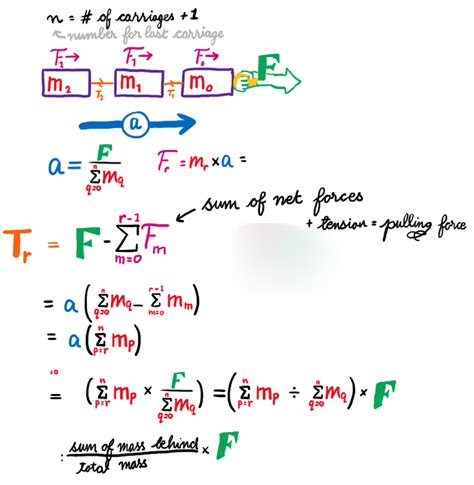 n = # of carriages + 1
↖ number for last carriage
F₂→ F₁→ F₀→ F
m₂ T₂ m₁ T₁ m₀
a
a = F / Σ(q=0 to n) m_q F_r = m_r × a =
sum of net forces
+ tension = pulling force
T_r = F - Σ(m=0 to r-1) F_m
= a ( Σ(q=0 to n) m_q - Σ(m=0 to r-1) m_m )
= a ( Σ(p=r to n) m_p )
=0
= ( Σ(p=r to n) m_p × F / Σ(q=0 to n) m_q ) = ( Σ(p=r to n) m_p ÷ Σ(q=0 to n) m_q ) × F
: sum of mass behind / total mass × F